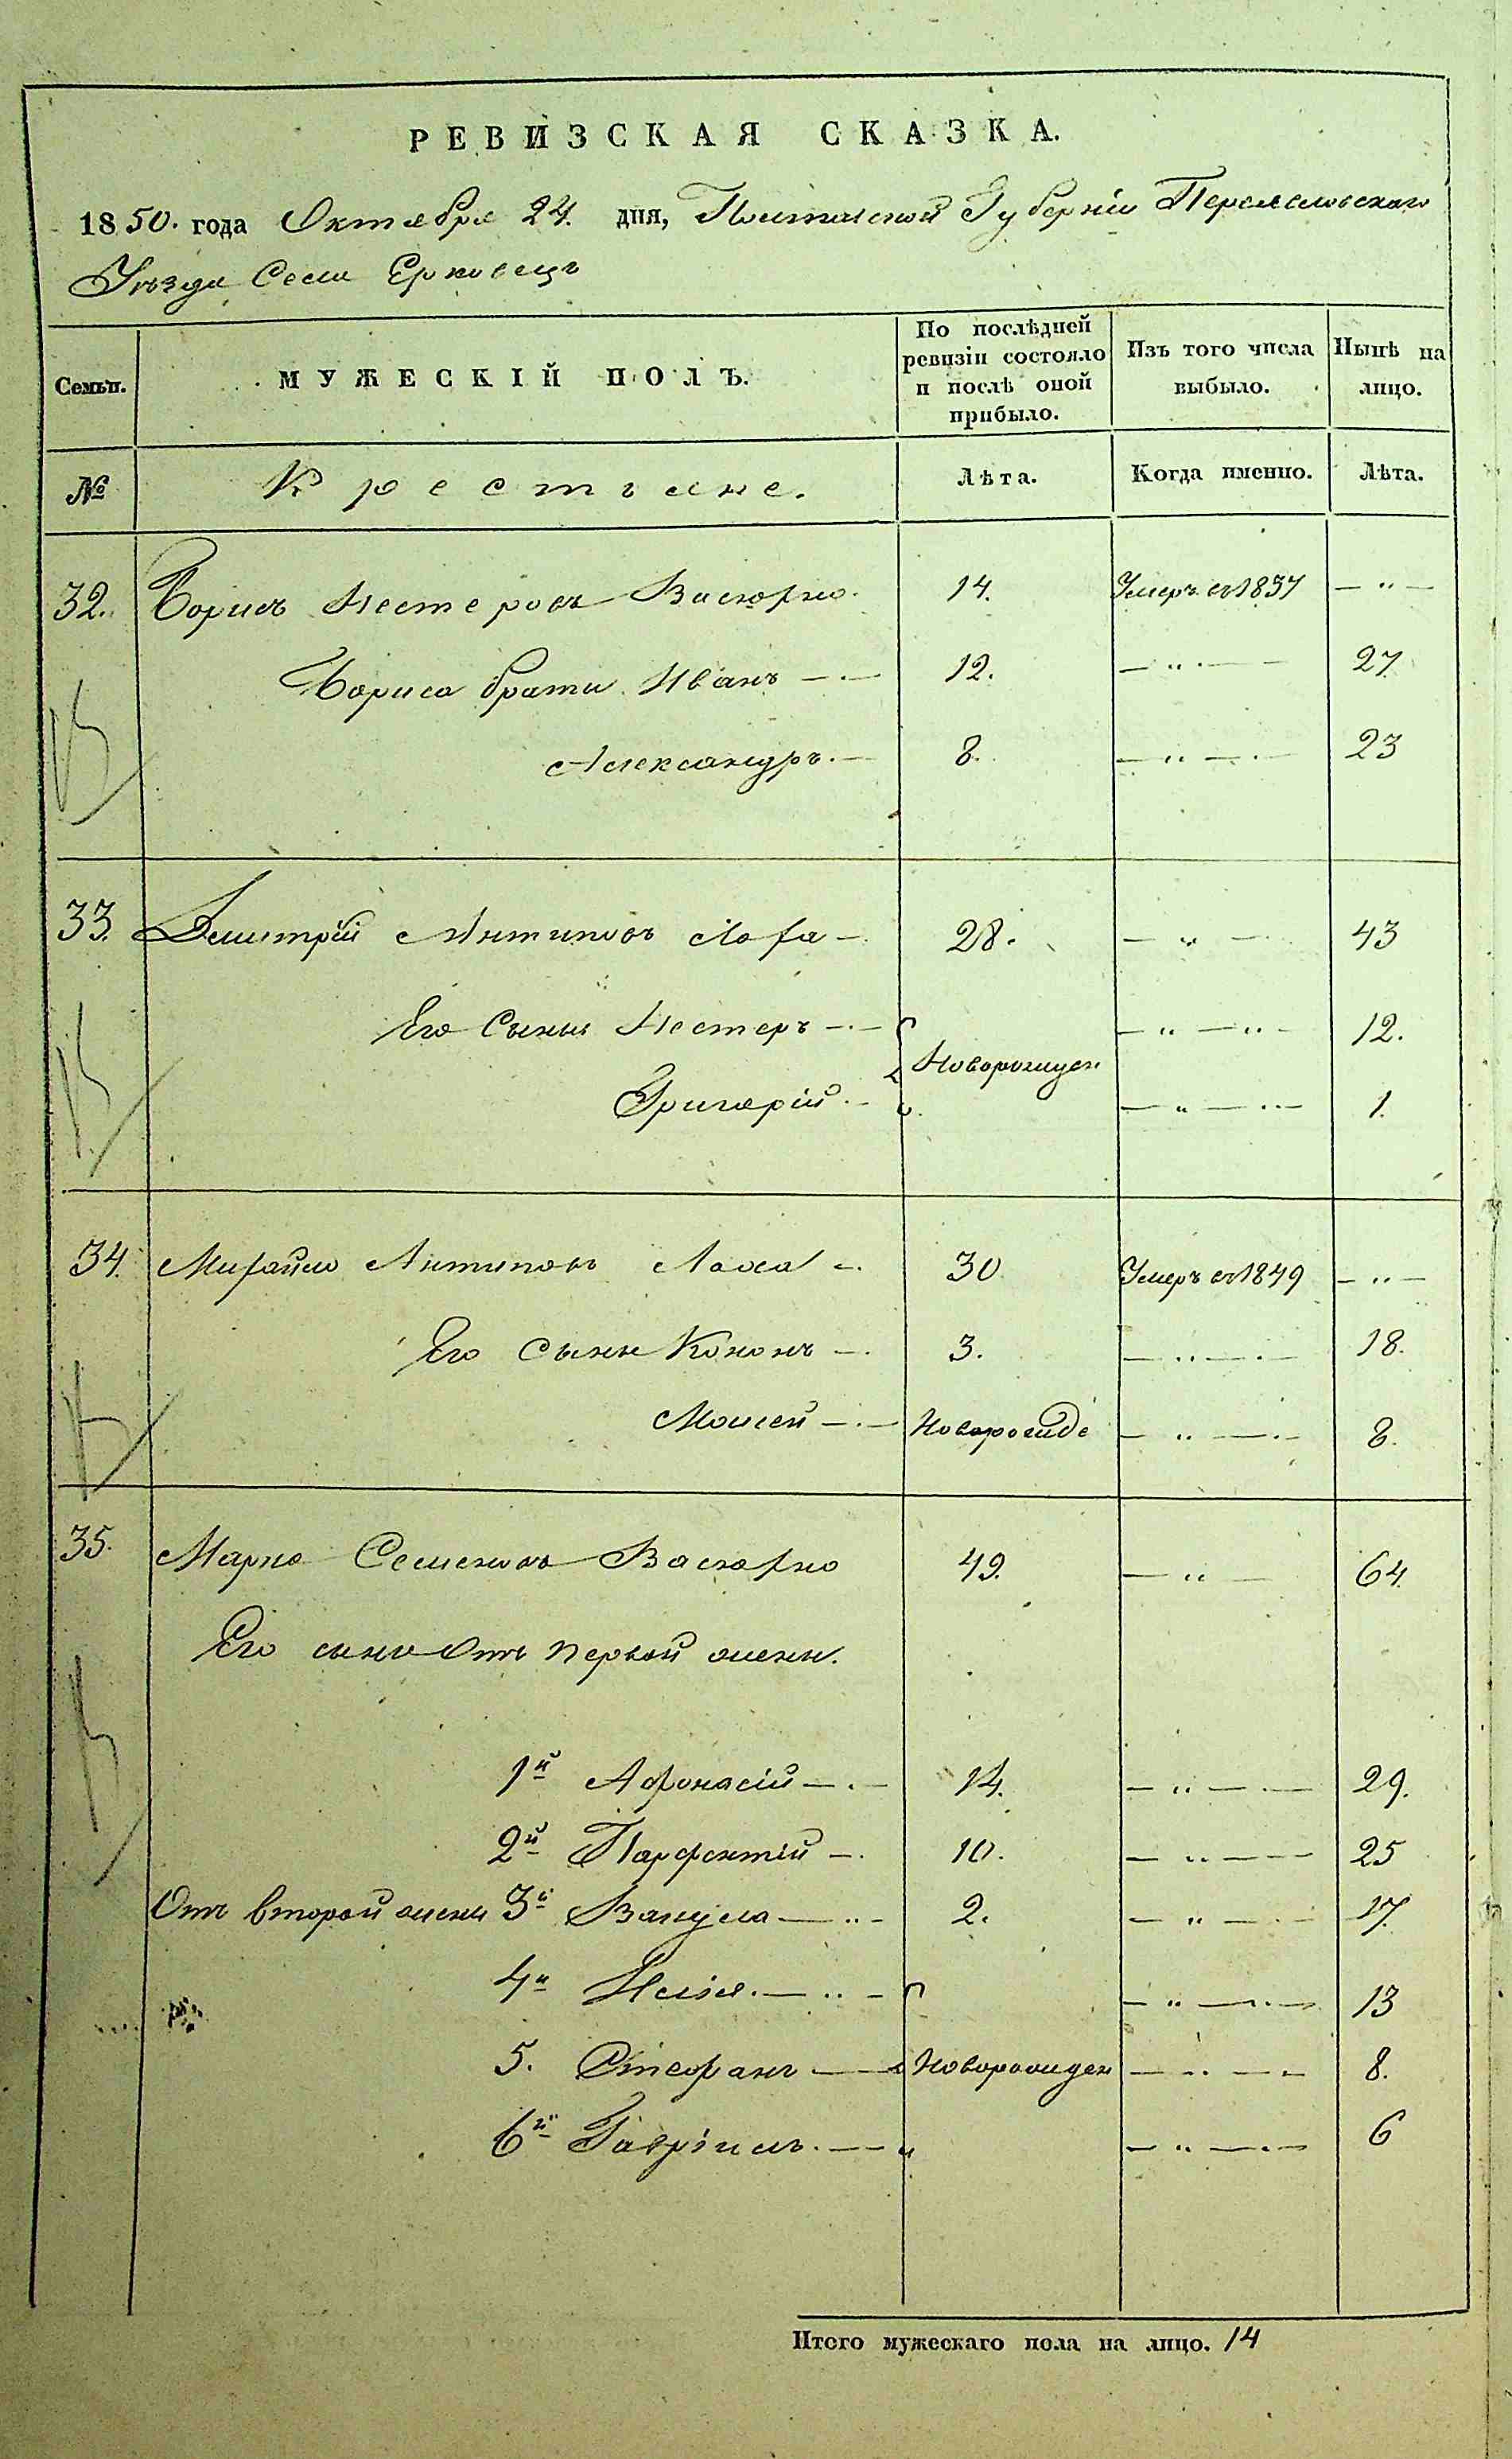 РЕВИЗСКАЯ СКАЗКА.
1850. года Октября 24. дня, Полтавской Губерніи Переяславскаго
Уѣзда Села Ерковецъ
Семьи. МУЖЕСКІЙ ПОЛЪ. По послѣдней ревизіи состояло и послѣ оной прибыло. Изъ того числа выбыло. Нынѣ на лицо.
№ Крестьяне. Лѣта. Когда именно. Лѣта.
32. Борисъ Нестеровъ Васюхно. 14. Умеръ въ 1837 — " —
Бориса братья Иванъ — 12. — " — 27
Александръ. — 8. — " — 23
33. Дмитрій Антиповъ Лоха — 28. — " — 43
Его Сыны Нестеръ — — " — " — 12.
Новорожден
Григорій. — — " — 1.
34. Михайло Антиповъ Лоха — 30 Умеръ въ 1849 — " —
Его Сыны Кононъ — 3. — " — 18.
Моисей — Новорожде — " — 8.
35. Марко Семеновъ Васюхно 49. — " — 64.
Его сыны Отъ первой жены.
1й Афонасій — 14. — " — 29.
2й Парфентій — 10. — " — 25
Отъ второй жены 3й Вакула — 2. — " — 17.
4й Илія. — — " — 13
5. Стефанъ — Новорожден — " — 8.
6й Гавріилъ. — — " — 6
Итого мужескаго пола на лицо. 14